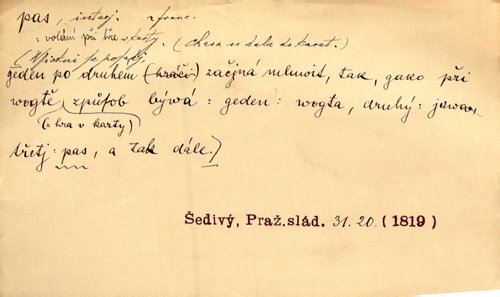 pas, interj. z franc.
= volání při hře v karty. (chasa se dala do karet.)
(Wšickni se
geden po druhém (hráči) začjná mluwit, tak, gako při
wogtě způsob býwá: geden: wogta, druhý:
(= hra v karty)
třetj: pas, a tak dále.)
Šedivý, Praž. slád. 31. 20. (1819)